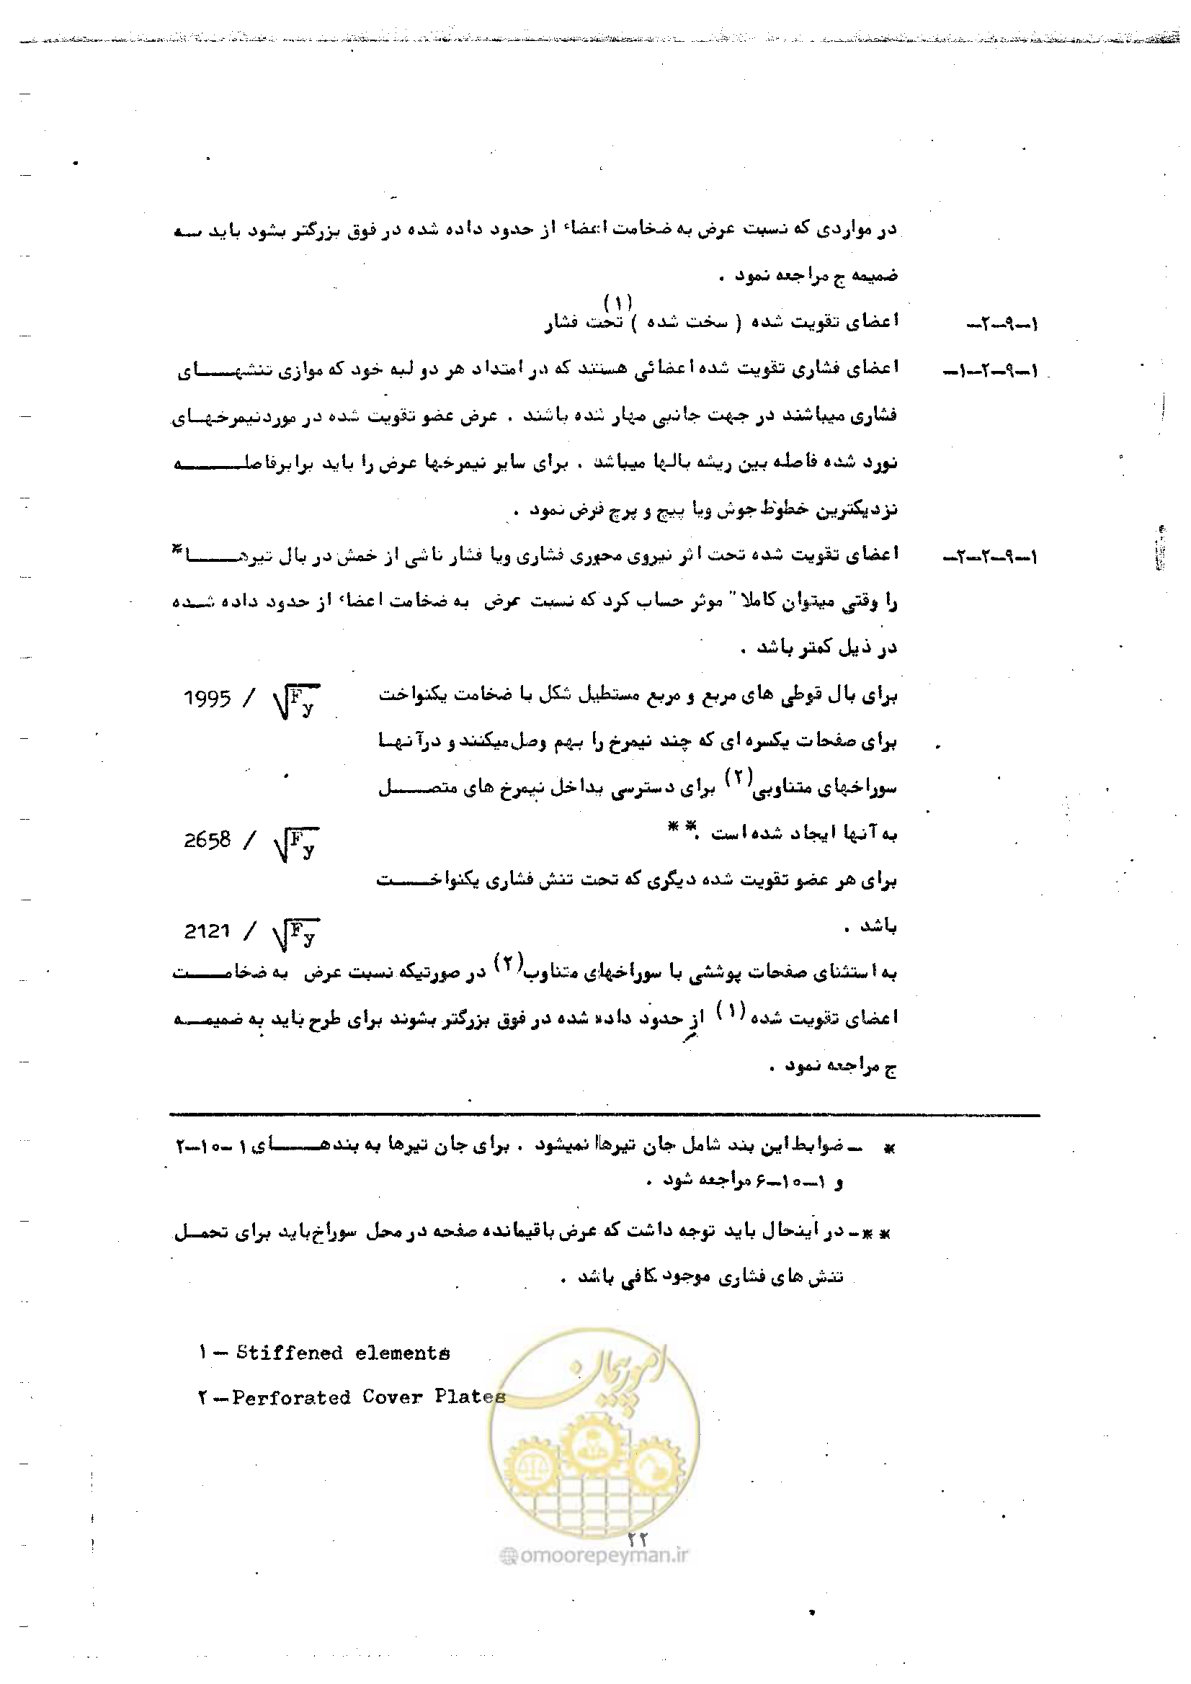 در مواردی که نسبت عرض به ضخامت اعضاء از حدود داده شده در فوق بزرگتر بشود باید سه
ضمیمه ج مراجعه نمود .
۱-۹-۲- اعضای تقویت شده ( سخت شده ) تحت فشار (۱)
۱-۹-۲-۱- اعضای فشاری تقویت شده اعضائی هستند که در امتداد هر دو لبه خود که موازی تنشهای
فشاری میباشند در جهت جانبی مهار شده باشند . عرض عضو تقویت شده در مورد نیمرخهای
نورد شده فاصله بین ریشه بالها میباشد . برای سایر نیمرخها عرض را باید برابر فاصله
نزدیکترین خطوط جوش ویا پیچ و پرچ فرض نمود .
۱-۹-۲-۲- اعضای تقویت شده تحت اثر نیروی محوری فشاری ویا فشار ناشی از خمش در بال تیرها*
را وقتی میتوان کاملا" موثر حساب کرد که نسبت عرض به ضخامت اعضاء از حدود داده شده
در ذیل کمتر باشد .
برای بال قوطی های مربع و مربع مستطیل شکل با ضخامت یکنواخت 1995 / √Fy
برای صفحات یکسره ای که چند نیمرخ را بهم وصل میکنند و در آنها
سوراخهای متناوبی(۲) برای دسترسی بداخل نیمرخ های متصل
به آنها ایجاد شده است .** 2658 / √Fy
برای هر عضو تقویت شده دیگری که تحت تنش فشاری یکنواخت
باشد . 2121 / √Fy
به استثنای صفحات پوششی با سوراخهای متناوب(۲) در صورتیکه نسبت عرض به ضخامت
اعضای تقویت شده(۱) از حدود داده شده در فوق بزرگتر بشوند برای طرح باید به ضمیمه
ج مراجعه نمود .
* - ضوابط این بند شامل جان تیرها نمیشود . برای جان تیرها به بندهای ۱-۱۰-۲
و ۱-۱۰-۶ مراجعه شود .
**- در اینحال باید توجه داشت که عرض باقیمانده صفحه در محل سوراخ باید برای تحمل
تنش های فشاری موجود کافی باشد .
۱ - Stiffened elements
۲ - Perforated Cover Plates
امور پیمان
۲۲
@omoorepeyman.ir